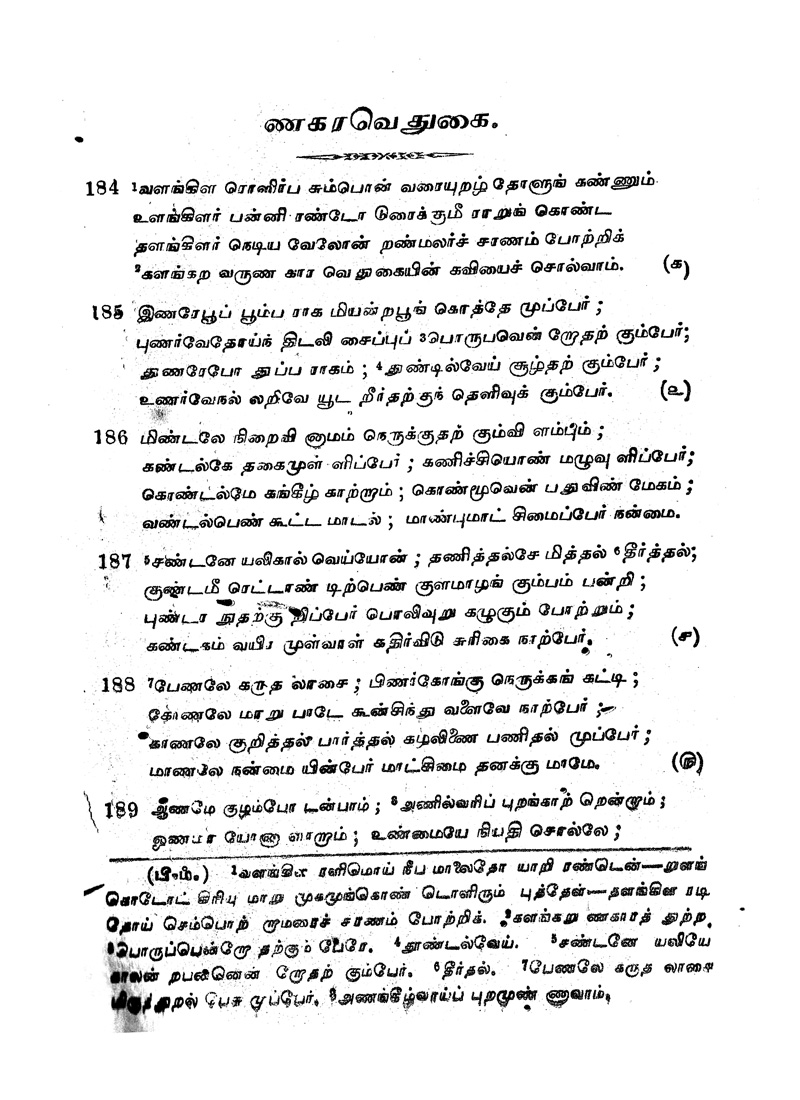 ணகரவெதுகை.
184 ¹வளங்கிள ரொளிர்ப சும்பொன் வரையுறழ் தோளுங் கண்ணும்
உளங்கிளர் பன்னி ரண்டோ டுரைக்குமீ ராறுங் கொண்ட
தளங்கிளர் நெடிய வேலோன் றண்மலர்ச் சரணம் போற்றிக்
²களங்கற வருண கார வெதுகையின் கவியைச் சொல்வாம். (க)
185 இணரேபூப் பூம்ப ராக மியன்றபூங் கொத்தே முப்பேர் ;
புணர்வேதோய்ந் திடலி சைப்புப் ³பொருபவென் றோதற் கும்பேர்;
துணரேபோ துப்ப ராகம் ; ⁴துண்டில்வேய் சூழ்தற் கும்பேர் ;
உணர்வேநல் லறிவே யூட றீர்தற்குந் தெளிவுக் கும்பேர். (உ)
186 மிண்டலே நிறைவி னாமம் நெருக்குதற் கும்வி ளம்பும் ;
கண்டல்கே தகைமுள் ளிப்பேர் ; கணிச்சியொண் மழுவு ளிப்பேர்;
கொண்டல்மே கங்கீழ் காற்றும் ; கொண்மூவென் பதுவிண் மேகம் ;
வண்டல்பெண் கூட்ட மாடல் ; மாண்புமாட் சிமைப்பேர் நன்மை.
187 ⁵சண்டனே யலிகால் வெய்யோன் ; தணித்தல்சே மித்தல் ⁶தீர்த்தல்;
குண்டமீ ரெட்டாண் டிற்பெண் குளமாழங் கும்பம் பன்றி ;
புண்டா நுதற்கு றிப்பேர் பொலிவுறு கழுகும் போற்றும் ;
கண்டகம் வயிர முள்வாள் கதிர்விடு சுரிகை நாற்பேர். (ச)
188 ⁷பேணலே கருத லாசை ; பிணர்கோங்கு நெருக்கங் கட்டி ;
கோணலே மாறு பாடே கூன்சிந்து வளைவே நாற்பேர் ;
காணலே குறித்தல் பார்த்தல் கழலிணை பணிதல் முப்பேர் ;
மாணலே நன்மை யின்பேர் மாட்சிமை தனக்கு மாமே. (ரு)
189 ஆணமே குழம்போ டன்பாம் ; ⁸அணில்வரிப் புறங்காற் றென்றும் ;
உண்மையே நியதி சொல்லே ;
(பி-ம்.) ¹வளங்கிள ரளிமொய் நீப மாலைதோ யாறி ரண்டென்—றுளங்
கொடோட் கிரியு மாறு முகமுங்கொண் டொளிரும் புத்தேள்—தளங்கிள ரடி
தோய் செம்பொற் றாமரைச் சரணம் போற்றிக். ²களங்கறு ணகாரத் துற்ற.
³பொருப்பென்றோ தற்கும் பேரே. ⁴தூண்டல்வேய். ⁵சண்டனே யலியே
காலன் றபனனென் றோதற் கும்பேர். ⁶தீர்தல். ⁷பேணலே கருத லாசை
முப்பேர். ⁸அணங்கீழ்வாய்ப் புறமுண் ணுவாம்.